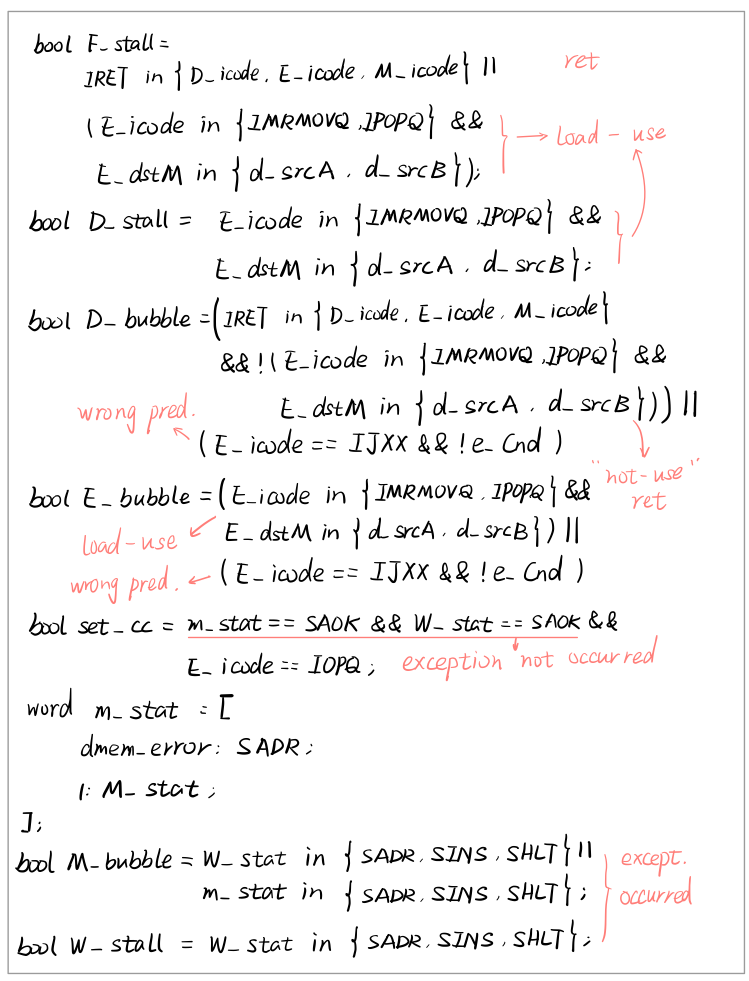 bool F_stall =
IRET in { D_icode, E_icode, M_icode } || ret
( E_icode in { IMRMOVQ, IPOPQ } &&
→ load-use
E_dstM in { d_srcA, d_srcB });
bool D_stall = E_icode in { IMRMOVQ, IPOPQ } &&
E_dstM in { d_srcA, d_srcB };
bool D_bubble = ( IRET in { D_icode, E_icode, M_icode }
&& !( E_icode in { IMRMOVQ, IPOPQ } &&
E_dstM in { d_srcA, d_srcB })) ||
wrong pred.
( E_icode == IJXX && !e_Cnd )
"not-use"
ret
bool E_bubble = ( E_icode in { IMRMOVQ, IPOPQ } &&
E_dstM in { d_srcA, d_srcB }) ||
load-use
wrong pred. ← ( E_icode == IJXX && !e_Cnd )
bool set_cc = m_stat == SAOK && W_stat == SAOK &&
E_icode == IOPQ; exception not occurred
word m_stat = [
dmem_error: SADR;
1: M_stat;
];
bool M_bubble = W_stat in { SADR, SINS, SHLT } || except.
m_stat in { SADR, SINS, SHLT }; occurred
bool W_stall = W_stat in { SADR, SINS, SHLT };